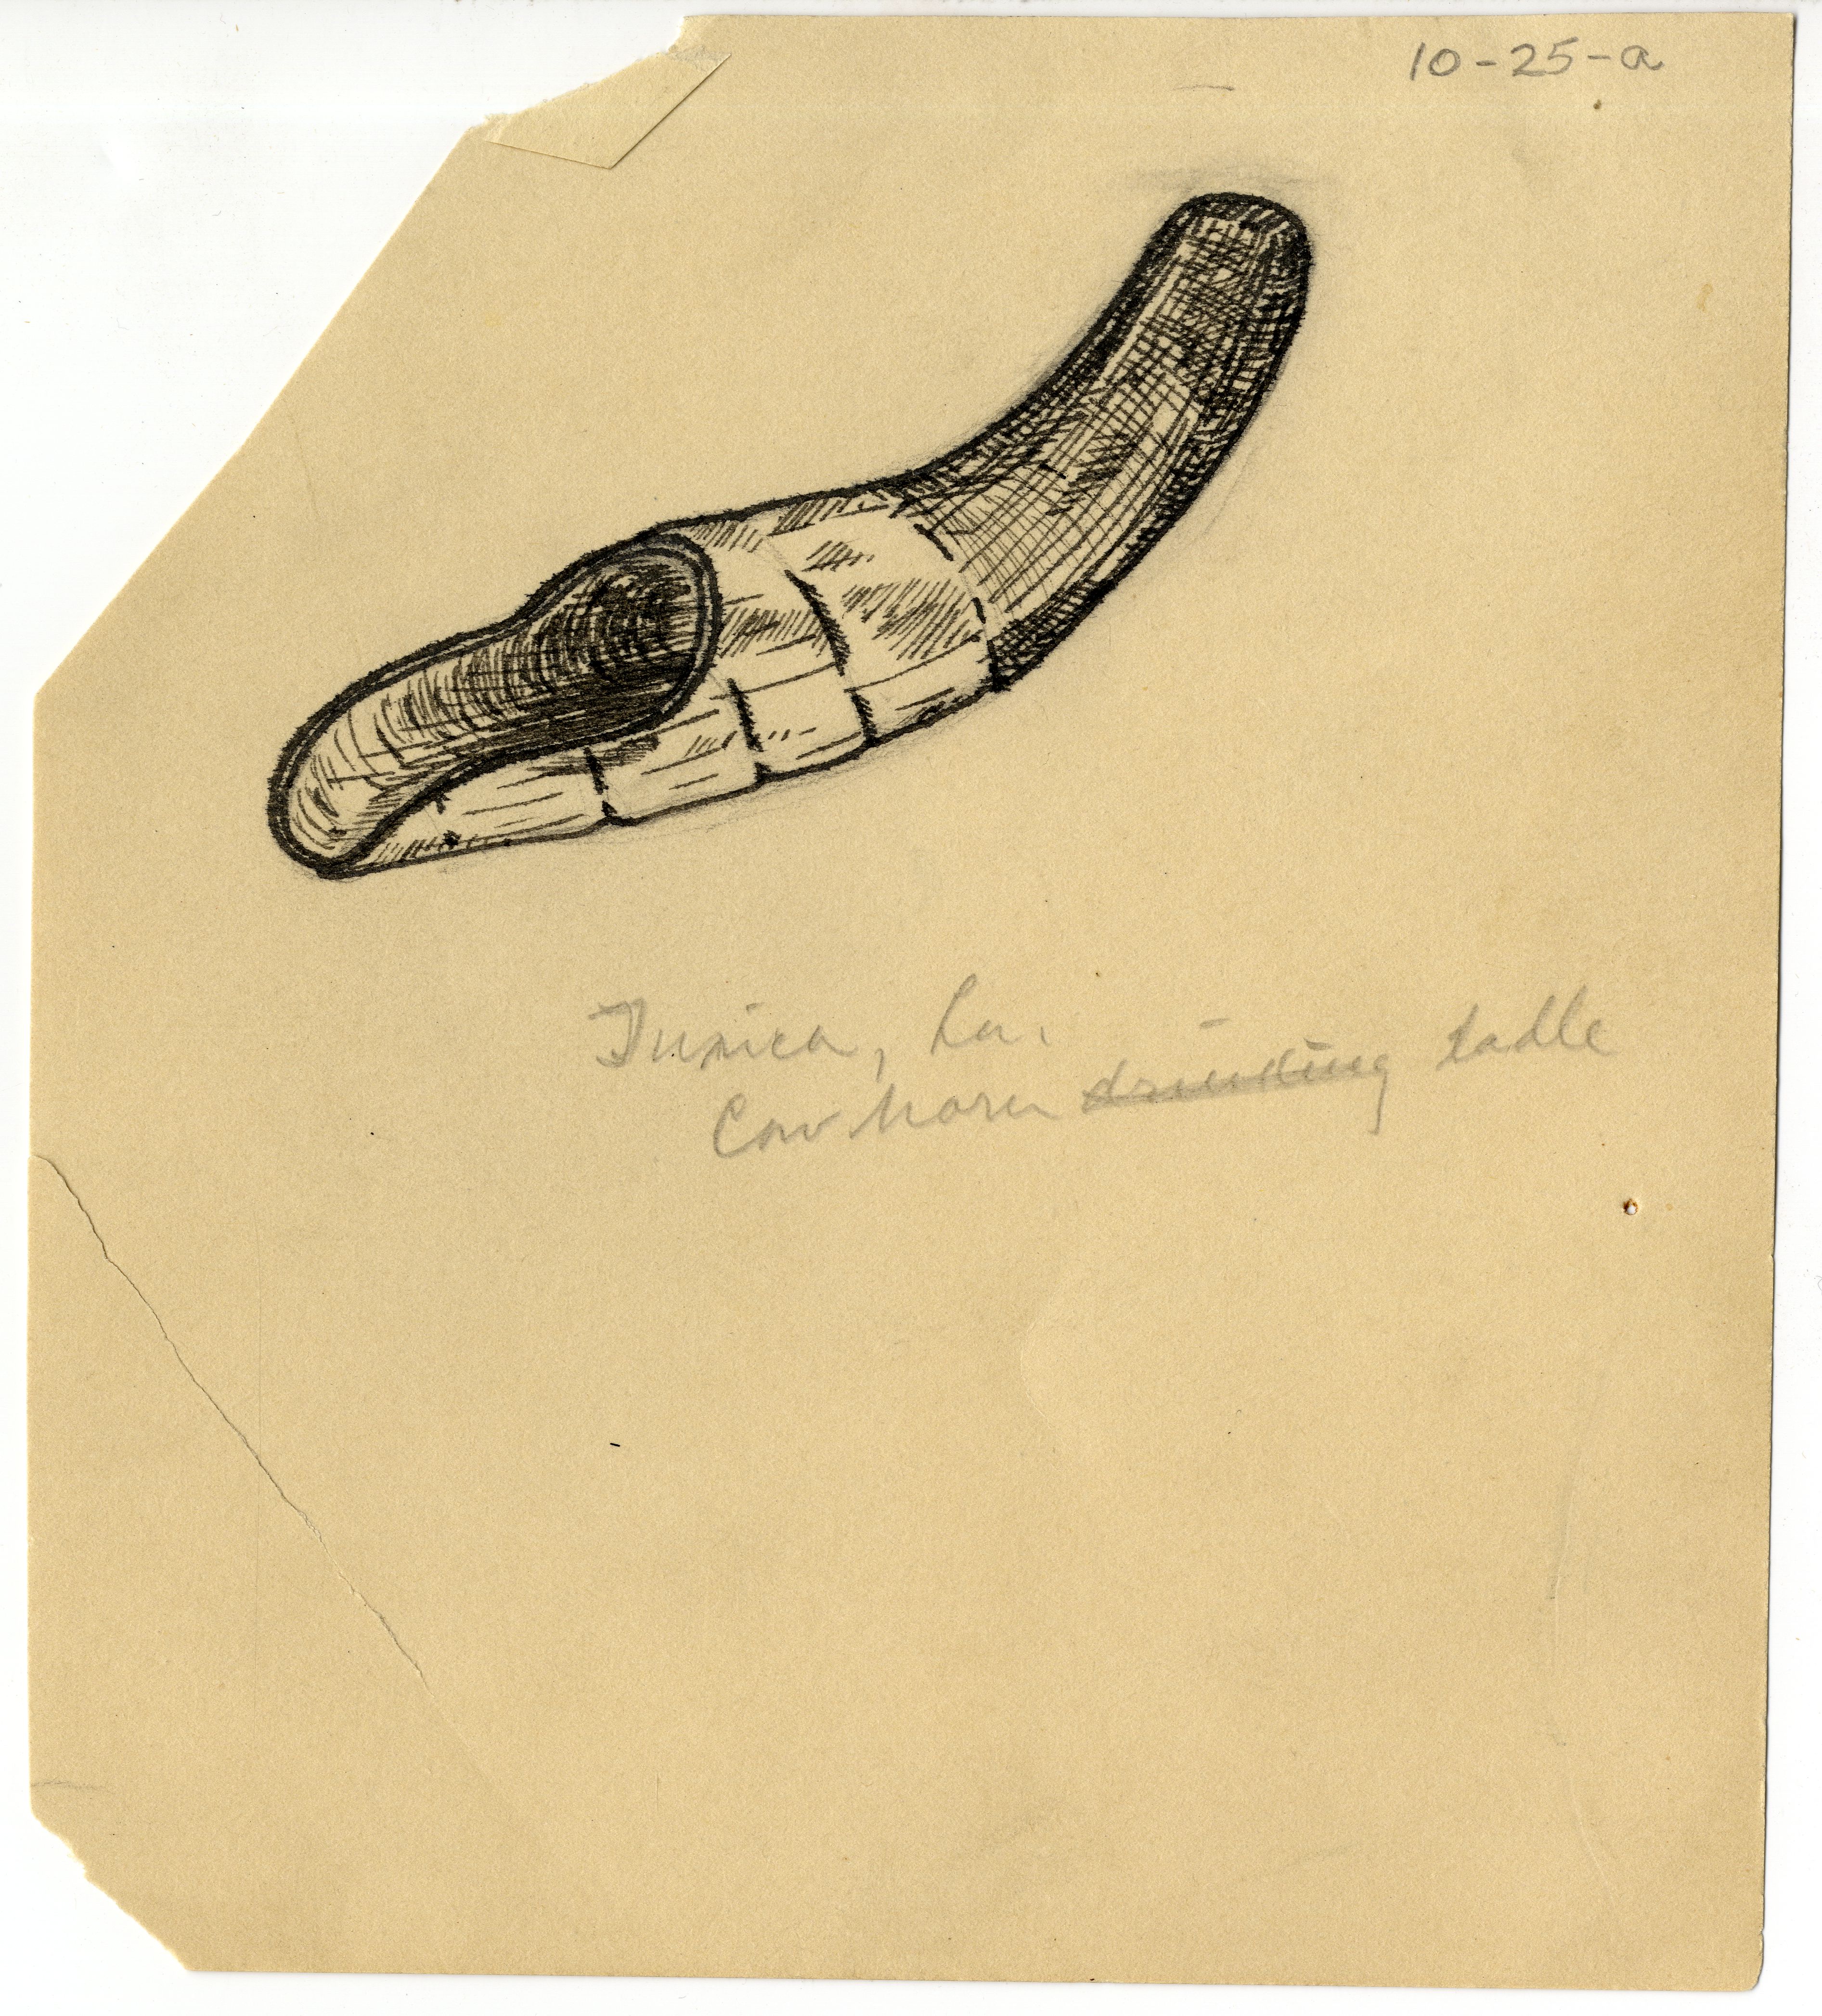 10-25-a
Tunica, La.
Cow horn drinking ladle